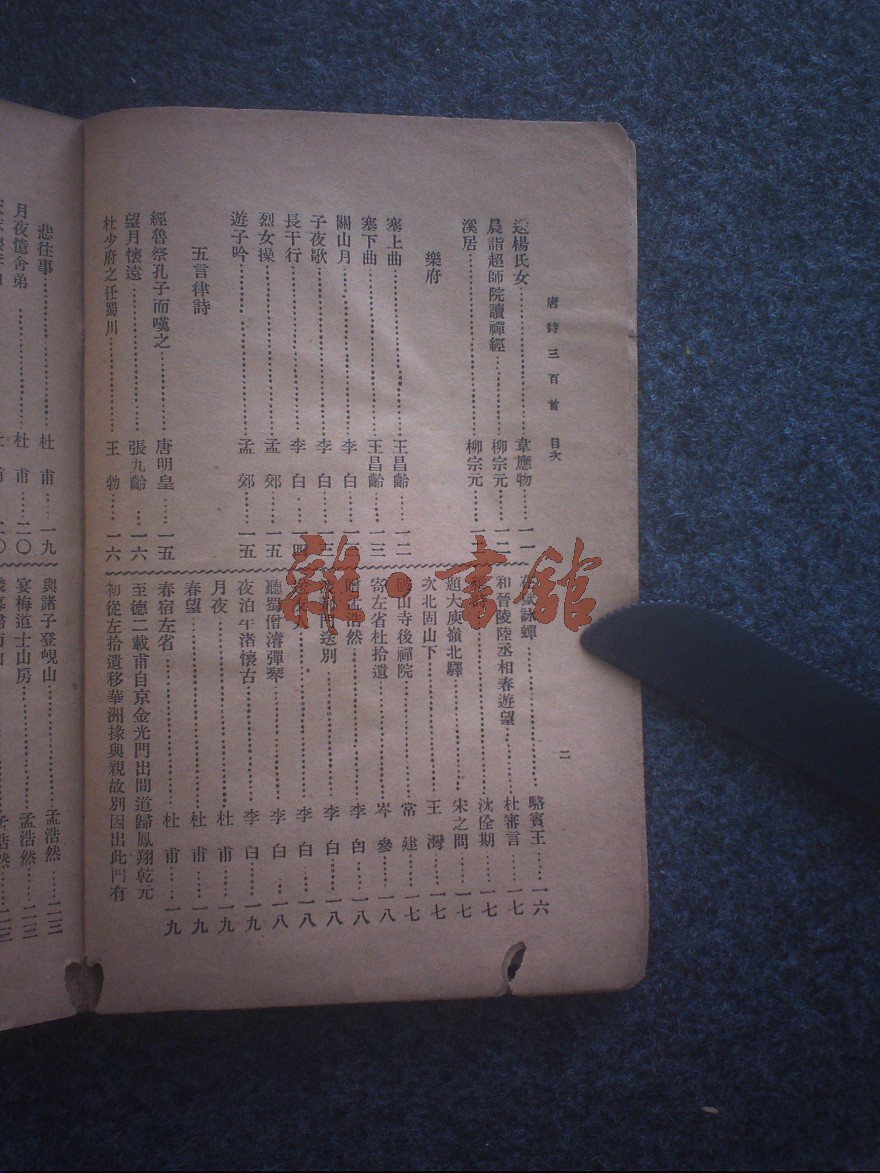 唐詩三百首 目次
二
送楊氏女……韋應物……一一
晨詣超師院讀禪經……柳宗元……一二
溪居……柳宗元
樂府
塞上曲……王昌齡……一二
塞下曲……王昌齡……一三
關山月……李白
子夜歌……李白……一三
長干行……李白……一四
烈女操……孟郊……一五
遊子吟……孟郊……一五
五言律詩
經魯祭孔子而嘆之……唐明皇……一五
望月懷遠……張九齡……一六
杜少府之任蜀川……王勃……一六
詠蟬……駱賓王……一六
和晉陵陸丞相春遊望……杜審言……一七
……沈佺期……一七
題大庾嶺北驛……宋之問……一七
次北固山下……王灣……一七
破山寺後禪院……常建……一七
寄左省杜拾遺……岑參……一八
贈孟浩然……李白……一八
送別……李白……一八
李白……一八
聽蜀僧濬彈琴……李白……一八
夜泊牛渚懷古……李白……一九
月夜……杜甫……一九
春望……杜甫……一九
春宿左省……杜甫……一九
至德二載甫自京金光門出間道歸鳳翔乾元
初從左拾遺移華洲掾與親故別因出此門有
悲往事……杜甫……一九
月夜憶舍弟……杜甫……二〇
與諸子登峴山……孟浩然……二三
宴梅道士山房……孟浩然……二三
雜·書館